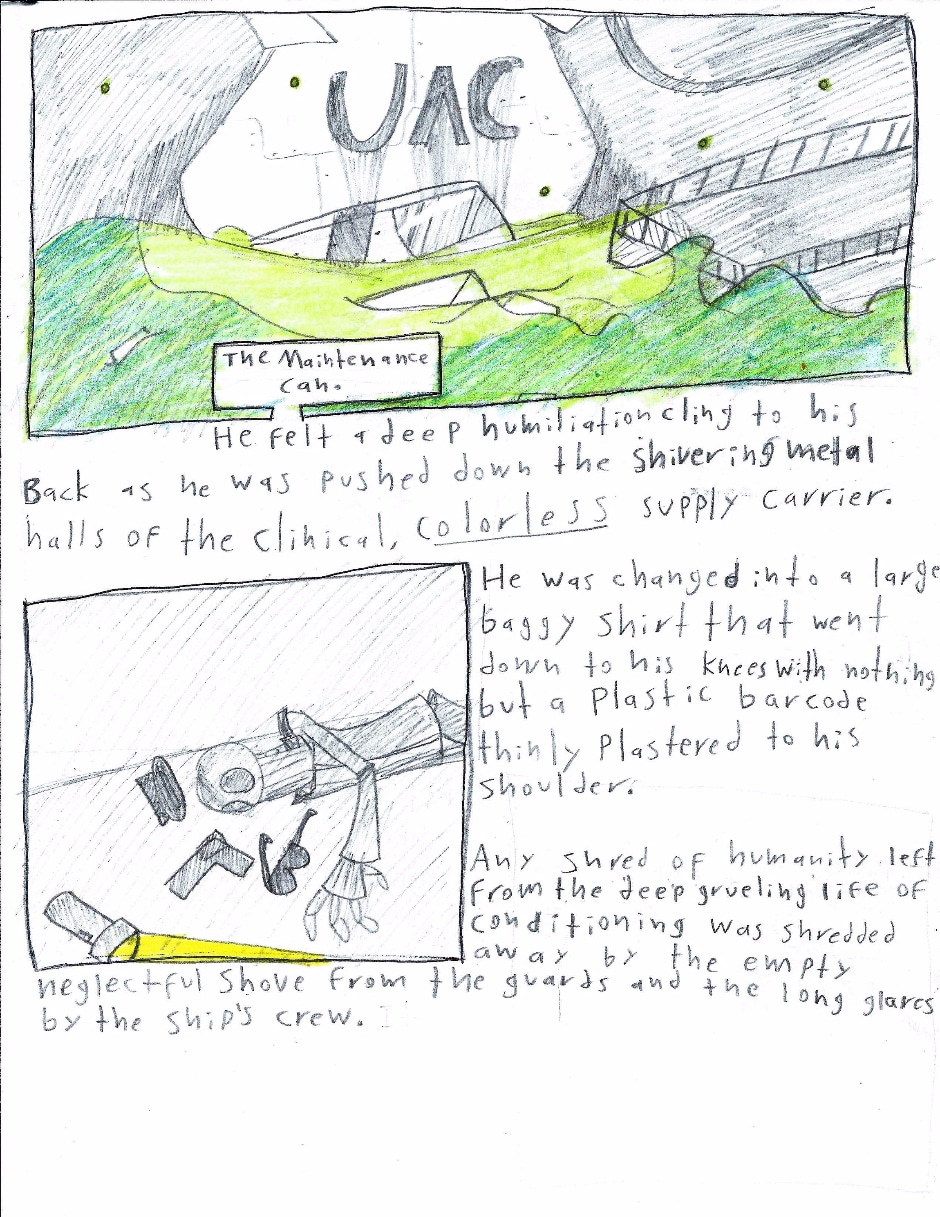 UAC
The Maintenance
can.
He felt a deep humiliation cling to his
Back as he was pushed down the shivering metal
halls of the clinical, colorless supply carrier.
He was changed into a large
baggy shirt that went
down to his knees with nothing
but a plastic barcode
thinly plastered to his
shoulder.
Any shred of humanity left
from the deep grueling life of
conditioning was shredded
away by the empty
neglectful shove from the guards and the long glares
by the ship's crew.